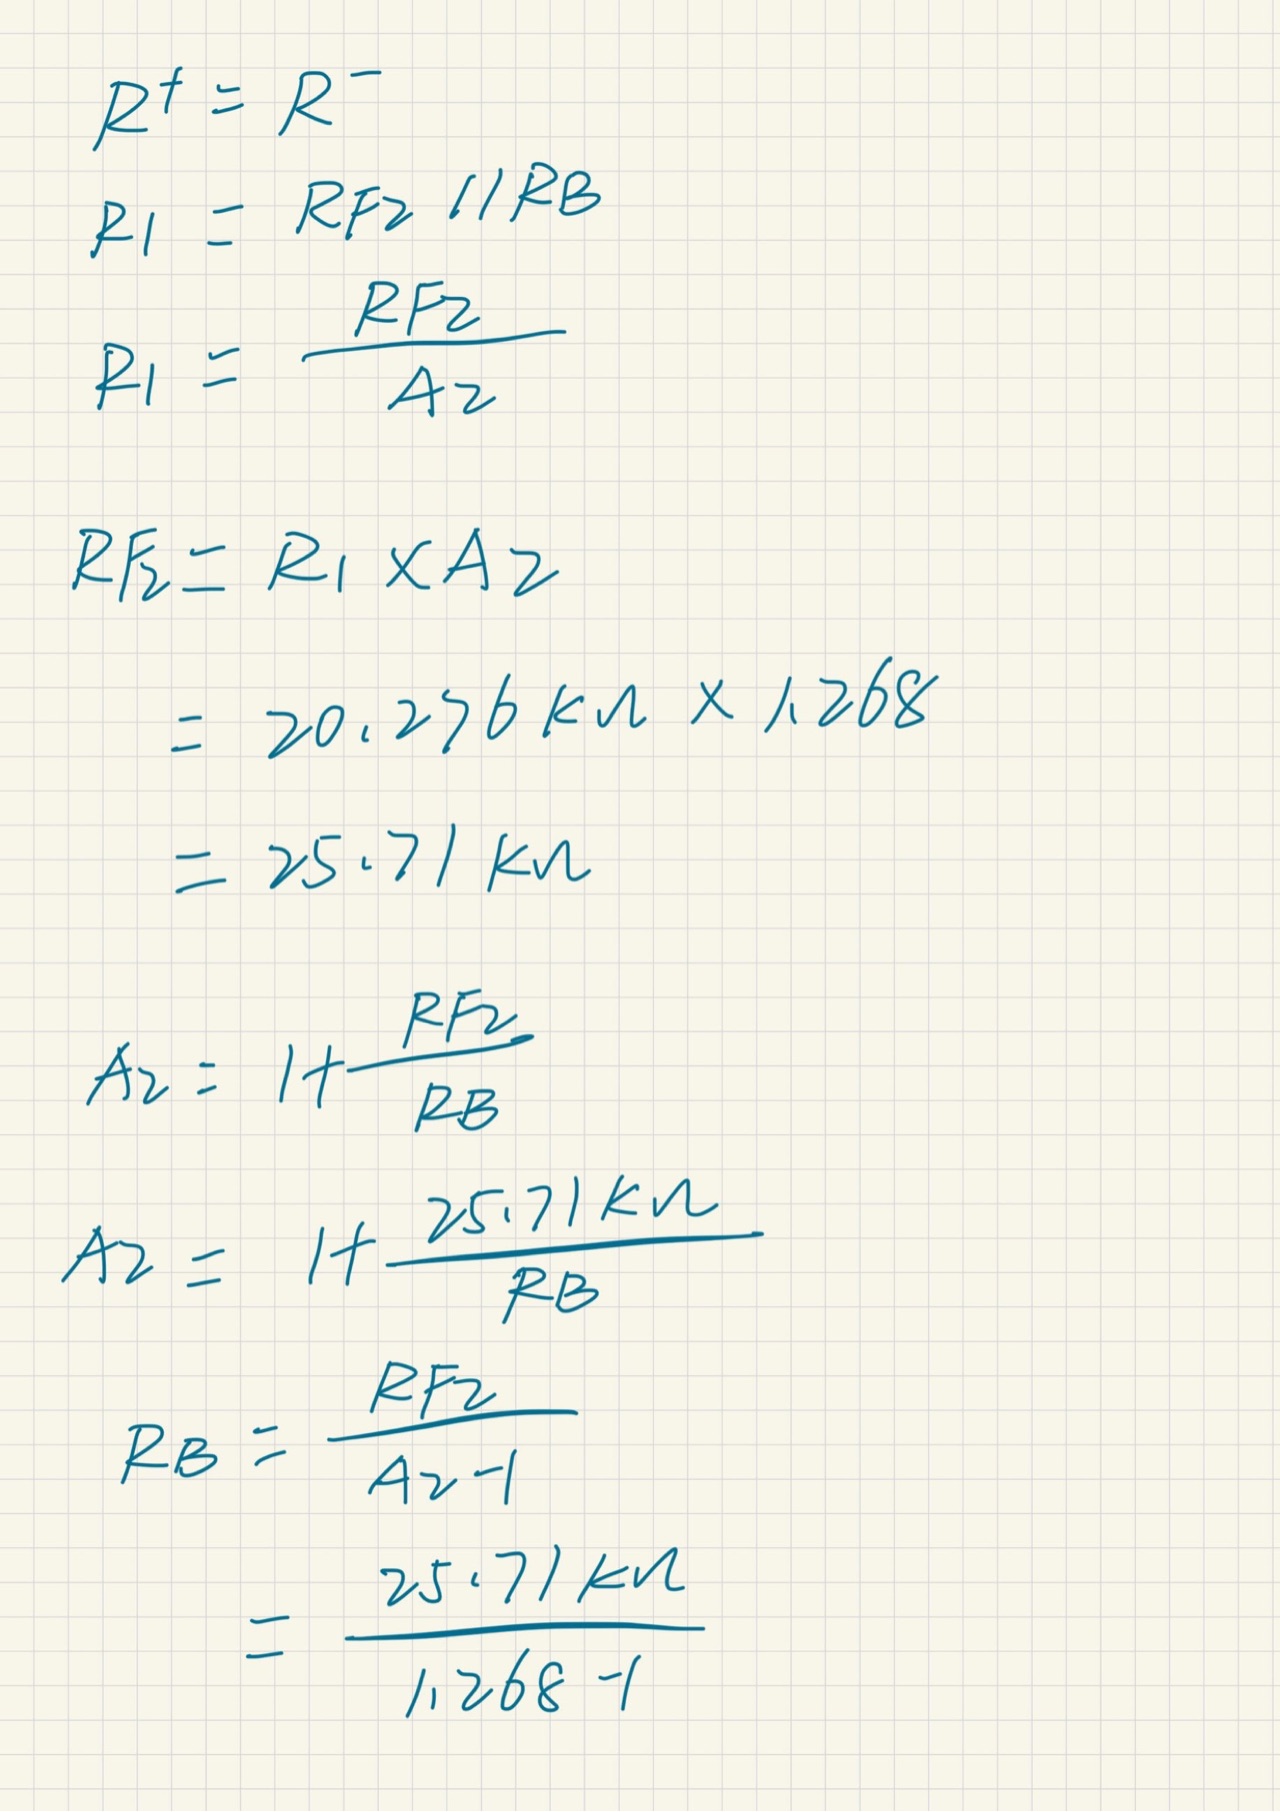 R⁺ = R⁻
R1 = RF2 // RB
R1 = RF2 / A2
RF2 = R1 × A2
= 20.276 kΩ × 1.268
= 25.71 kΩ
A2 = 1 + RF2 / RB
A2 = 1 + 25.71 kΩ / RB
RB = RF2 / A2 - 1
= 25.71 kΩ / 1.268 - 1